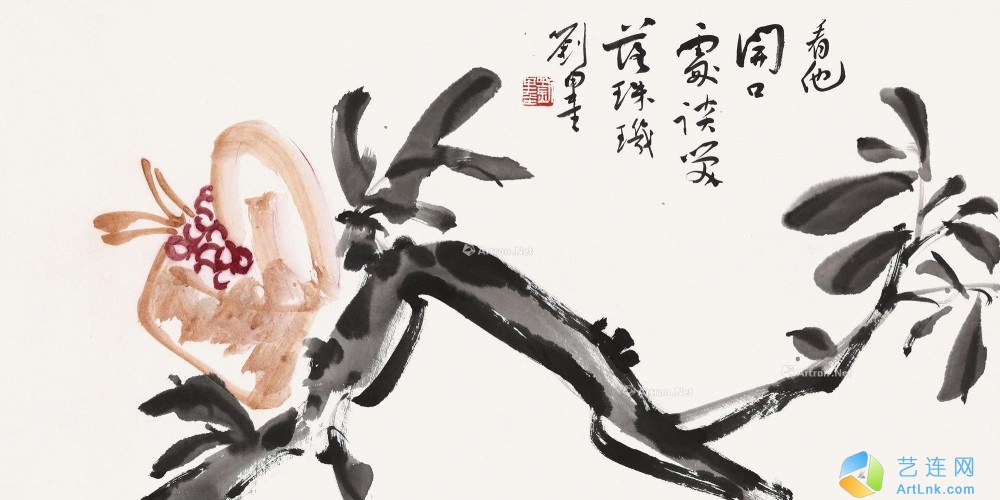 看他
開口
處談笑
落珠璣
劉墨
Artron.Net
Artron.Net
Artron.Net
艺连网
ArtLnk.com